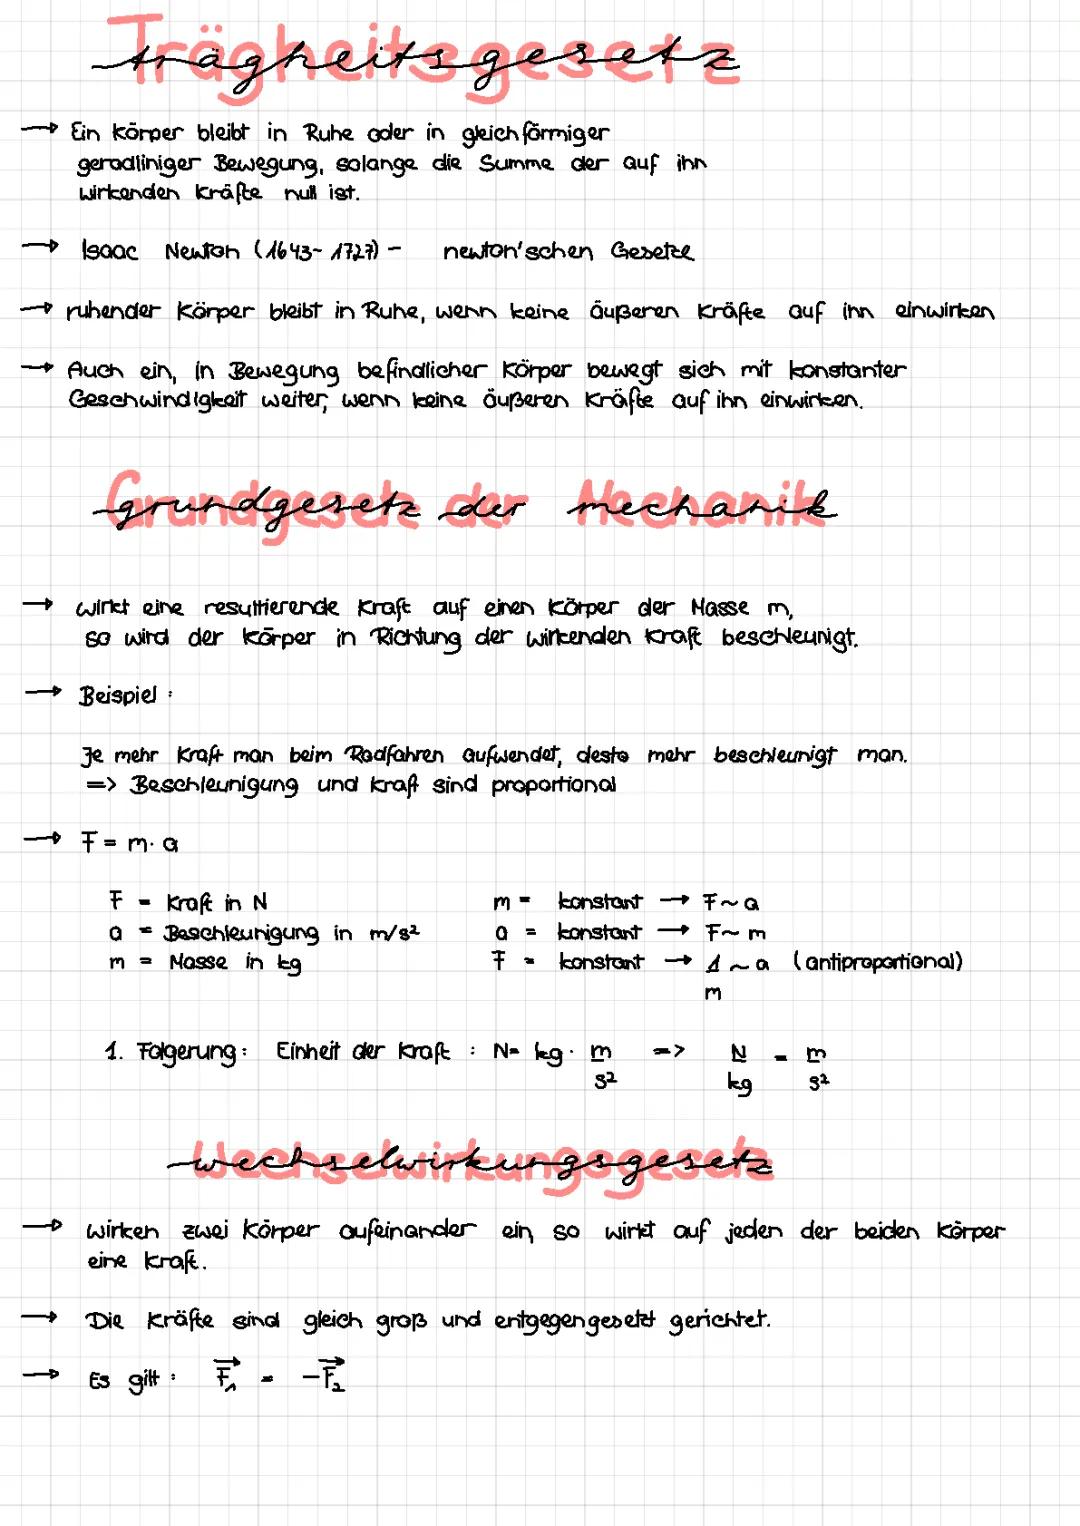 Trägheitsgesetz
→ Ein Körper bleibt in Ruhe oder in gleichförmiger
geradliniger Bewegung, solange die Summe der auf ihn
wirkenden Kräfte null ist.
→ Isaac Newton (1643-1727) - newton'schen Gesetze
→ ruhender Körper bleibt in Ruhe, wenn keine äußeren Kräfte auf ihn einwirken
→ Auch ein, in Bewegung befindlicher Körper bewegt sich mit konstanter
Geschwindigkeit weiter, wenn keine äußeren Kräfte auf ihn einwirken.
Grundgesetz der Mechanik
→ wirkt eine resultierende Kraft auf einen Körper der Masse m,
so wird der Körper in Richtung der wirkenden Kraft beschleunigt.
→ Beispiel:
Je mehr Kraft man beim Radfahren aufwendet, desto mehr beschleunigt man.
=> Beschleunigung und Kraft sind proportional
→ F = m · a
F = Kraft in N m = konstant → F~a
a = Beschleunigung in m/s² a = konstant → F~ m
m = Masse in kg F = konstant → 1/m ~ a (antiproportional)
1. Folgerung: Einheit der Kraft : N= kg · m/s² => N/kg = m/s²
Wechselwirkungsgesetz
→ wirken zwei Körper aufeinander ein, so wirkt auf jeden der beiden Körper
eine Kraft.
→ Die Kräfte sind gleich groß und entgegengesetzt gerichtet.
→ Es gilt: F⃗₁ = -F⃗₂